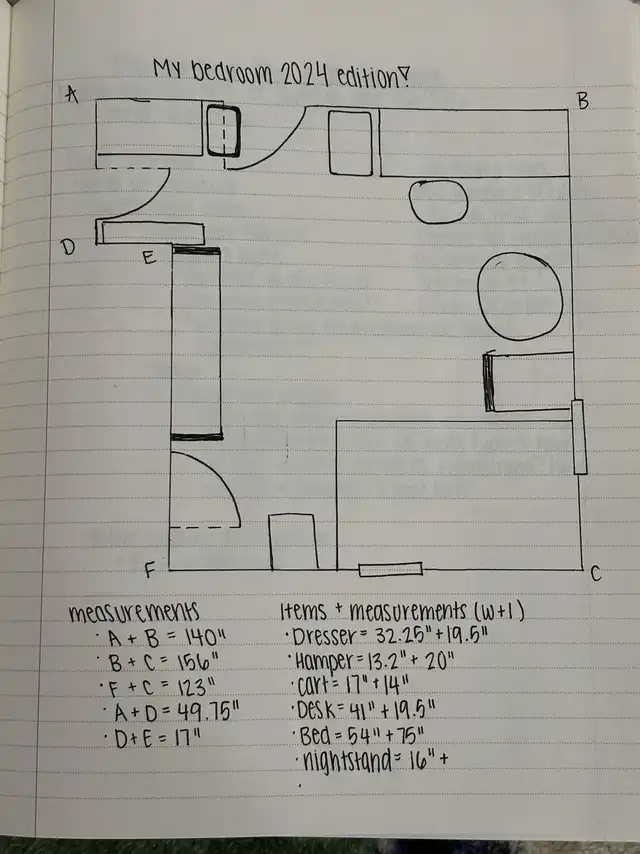 My bedroom 2024 edition!
A
B
D
E
F
C
measurements
· A + B = 140"
· B + C = 156"
· F + C = 123"
· A + D = 49.75"
· D + E = 17"
Items + measurements (w+l)
· Dresser = 32.25" + 19.5"
· Hamper = 13.2" + 20"
· cart = 17" + 14"
· Desk = 41" + 19.5"
· Bed = 54" + 75"
· nightstand = 16" +
·